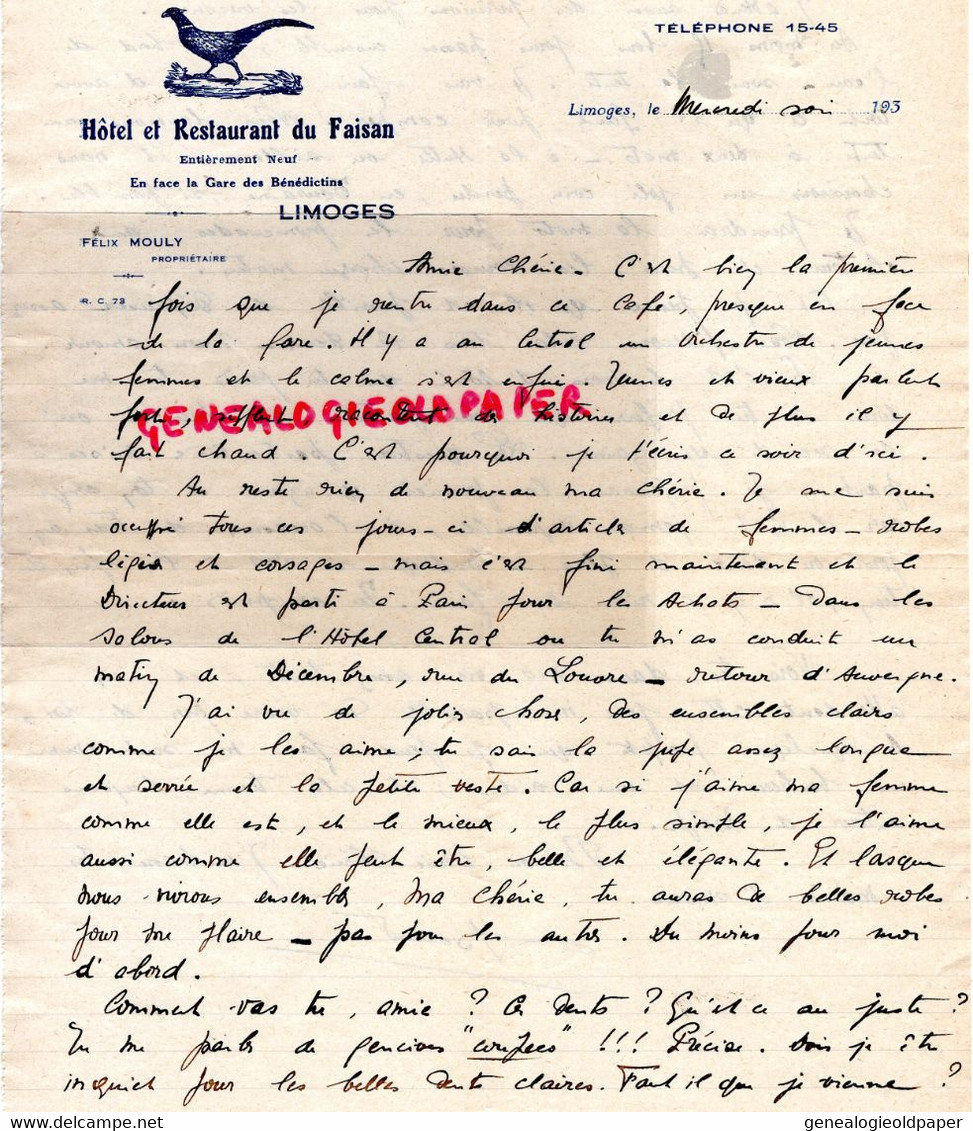 TÉLÉPHONE 15-45
Limoges, le Mercredi soir 193
Hôtel et Restaurant du Faisan
Entièrement Neuf
En face la Gare des Bénédictins
LIMOGES
FÉLIX MOULY
PROPRIÉTAIRE
R. C. 73
Amie Chérie - C'est bien la première
fois que je rentre dans ce Café, presque en face
de la Gare. Il y a au Central un Orchestre de jeunes
femmes et le calme s'est enfui. Jeunes et vieux parlent
fort, sifflent, racontent des histoires et de plus il y
fait chaud. C'est pourquoi je t'écris ce soir d'ici.
Au reste rien de nouveau ma chérie. Je me suis
occupé tous ces jours-ci d'articles de femmes - robes
légères et corsages - mais c'est fini maintenant et le
Directeur est parti à Paris pour les Achats - Dans les
salons de l'Hôtel Central ou tu m'as conduit un
matin de Décembre, rue du Louvre - retour d'Auvergne.
J'ai vu de jolies choses, des ensembles clairs
comme je les aime ; tu sais la jupe assez longue
et serrée et la petite veste. Car si j'aime ma femme
comme elle est, et le mieux, le plus simple, je l'aime
aussi comme elle peut être, belle et élégante. Et lorsque
nous vivrons ensembles, Ma Chérie, tu auras de belles robes
pour me plaire - pas pour les autres. Du moins pour moi
d'abord.
Comment vas tu, amie ? Ces dents ? Qu'est ce au juste ?
Tu me parles de gencives "coupées" !!! Précise. Dois je être
inquiet pour les belles dents claires. Faut il que je vienne ?
GENEALOGIEOLDPAPER
genealogieoldpaper